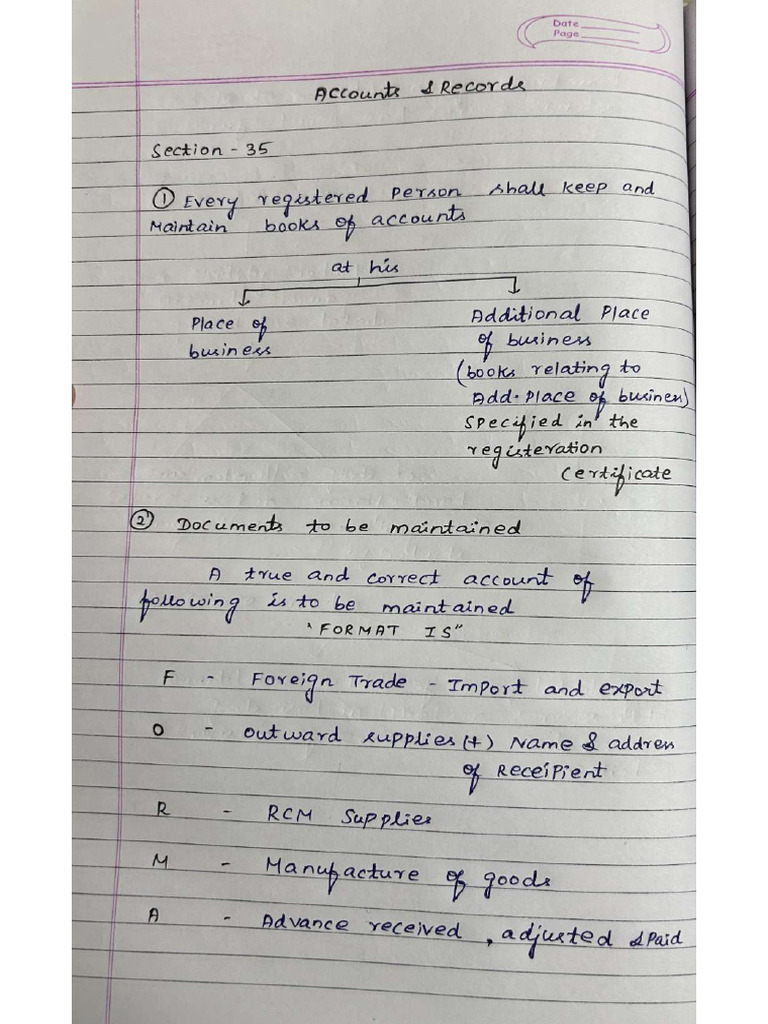 Date
Page
Accounts & Records
Section - 35
① Every registered Person shall keep and
Maintain books of accounts
at his
Place of
business
Additional Place
of business
(books relating to
Add. Place of business)
Specified in the
registeration
Certificate
② Documents to be maintained
A true and correct account of
following is to be maintained
'FORMAT IS"
F - Foreign Trade - Import and export
O - Outward supplies (+) Name & address
of Receipient
R - RCM Supplies
M - Manufacture of goods
A - Advance received, adjusted & Paid